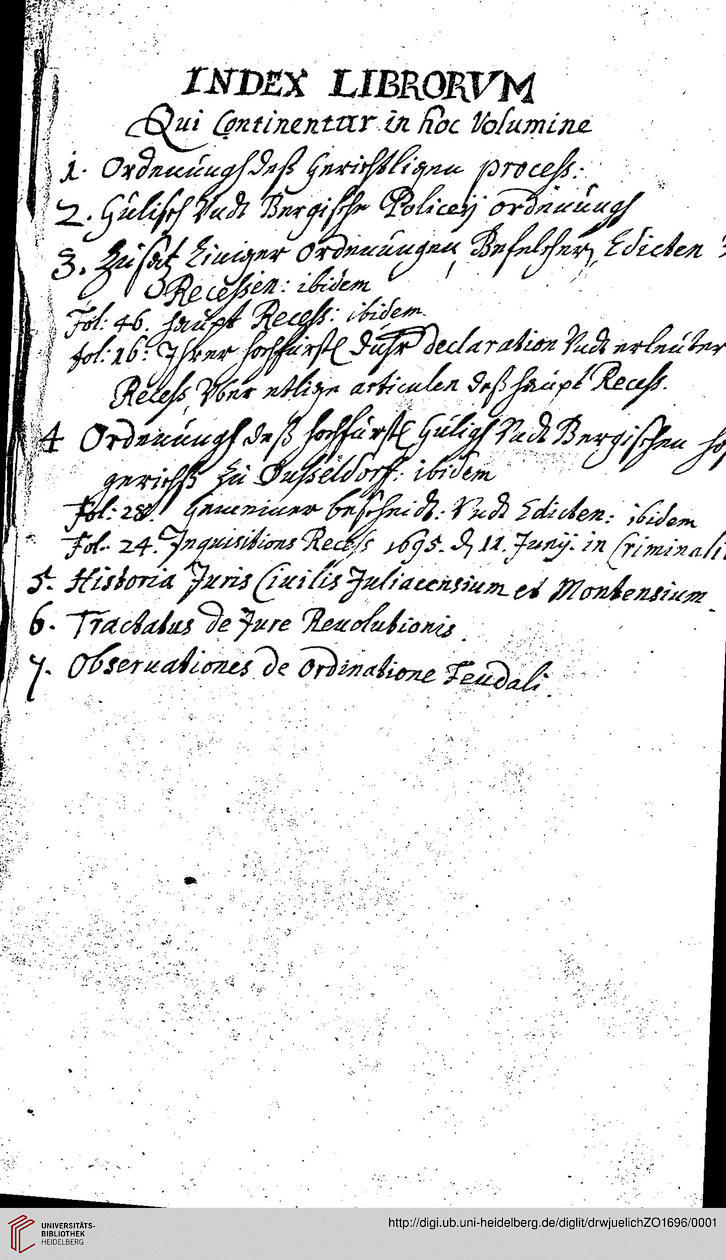 INDEX LIBRORVM
Qui Continentur in hoc Volumine
1. Ordenungh deß Gerichtligen process:
2. Gülisch Vndt Bergische Policeÿ ordenungh
3. Zusatz Einiger Ordenungen, Befelcher, Edicten
Recessen: ibidem
Fol: 46. haupt Recess: ibidem
fol: 16: Ihrer hochfürstl durchl declaration Vndt erleuter
Recess Vber etlige articulen deß haupt Recess.
4 Ordenungh deß hochfürstl Güligh Vndt Bergischen hof
gerichtß zu Dusseldorf: ibidem
Fol: 28. Gemeiner bescheidt: Vndt Edicten: ibidem
Fol. 24. Inquisitions Recess 1695. d 11. Junij. in Criminali
5. Historia Juris Ciuilis Juliacensium et Montensium.
6. Tractatus de Jure Reuolutionis.
7. Obseruationes de Ordinatione Feudali.
UNIVERSITÄTS-
BIBLIOTHEK
HEIDELBERG
http://digi.ub.uni-heidelberg.de/diglit/drwjuelichZO1696/0001